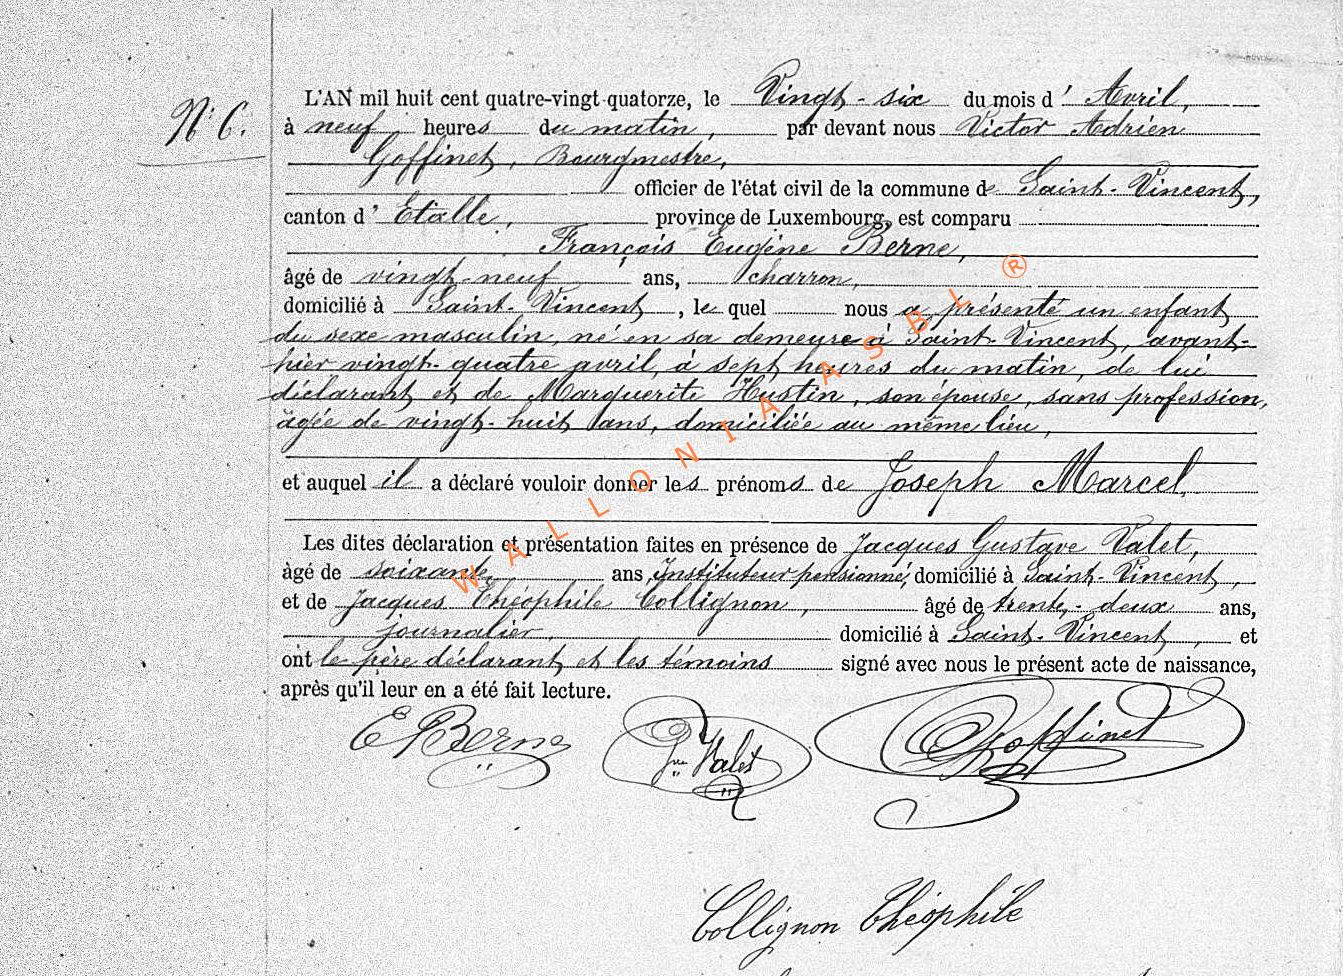 N° 6.
L'AN mil huit cent quatre-vingt quatorze, le Vingt-six du mois d' Avril,
à neuf heures du matin, par devant nous Victor Adrien
Goffinet, Bourgmestre,
officier de l'état civil de la commune de Saint-Vincent,
canton d' Etalle, province de Luxembourg, est comparu
François Eugène Berne,
âgé de vingt-neuf ans, charron,
domicilié à Saint-Vincent, le quel nous a présenté un enfant
du sexe masculin, né en sa demeure à Saint-Vincent, avant-
hier vingt-quatre avril, à sept heures du matin, de lui
déclarant et de Marguerite Hustin, son épouse, sans profession,
âgée de vingt-huit ans, domiciliée au même lieu,
et auquel il a déclaré vouloir donner les prénoms de Joseph Marcel,
Les dites déclaration et présentation faites en présence de Jacques Gustave Valet,
âgé de soixante ans, Instituteur pensionné, domicilié à Saint-Vincent,
et de Jacques Théophile Collignon, âgé de trente-deux ans,
journalier, domicilié à Saint-Vincent, et
ont le père déclarant et les témoins signé avec nous le présent acte de naissance,
après qu'il leur en a été fait lecture.
E Berne Valet Goffinet
Collignon Théophile
WALLONIA ASBL ®